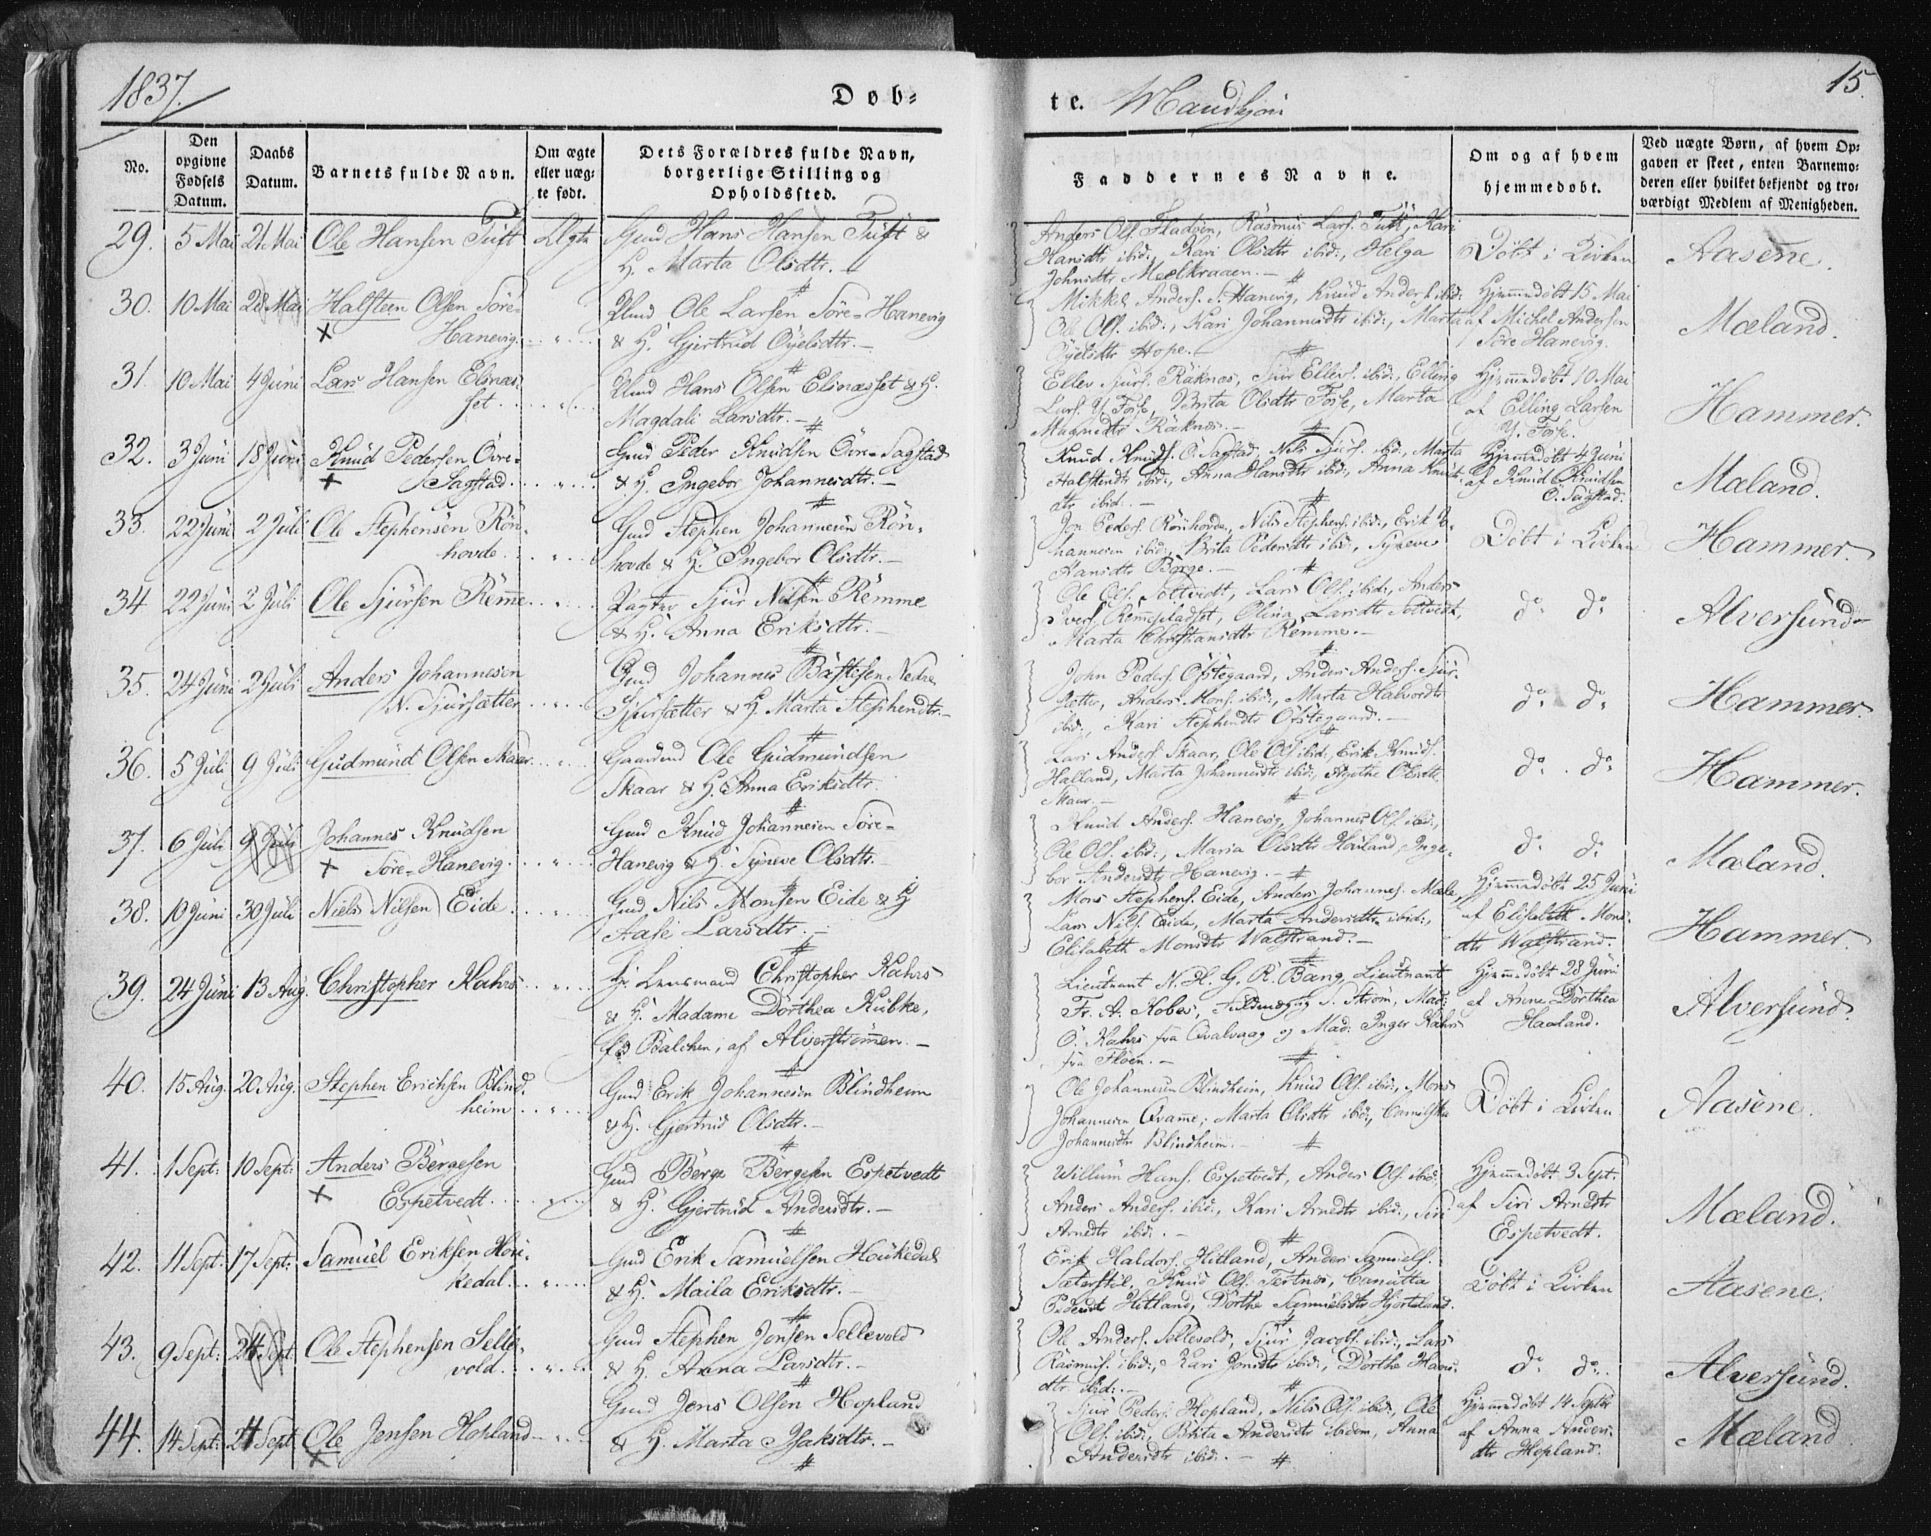 1837.
Døb-
te. Mandkjön
15.
No.
Den opgivne Fødsels Datum.
Daabs Datum.
Barnets fulde Navn.
Om ægte eller uæg- te født.
Dets Forældres fulde Navn, borgerlige Stilling og Opholdssted.
Faddernes Navne.
Om og af hvem hjemmedøbt.
Ved uægte Børn, af hvem Op- gaven er skeet, enten Barnemo- deren eller hvilket bekjendt og tro- værdigt Medlem af Menigheden.
29. 5 Mai 21 Mai Ole Hansen Tuft Ægte Gmd Hans Hansen Tuft &
H. Marta Olsdtr.
Anders Ols. Fladöen, Rasmus Lars. Tuft, Kari
Hansdtr ibid:, Kari Olsdtr ibid:, Helga
Johnsdtr Moelkraaen.
Döbt i Kirken
Aasene.
30. 10 Mai 28 Mai Halsteen Olsen Söre-
Hanevig
Hmd Ole Larsen Söre-Hanevig
& H. Gjertrud Öyelsdtr.
Mikkel Anders. S. Hanevig, Knud Anders. ibid:
Ole Ols. ibid:, Kari Johannesdtr ibid:, Marta
Öyelsdtr Hope.
Hjemmedöbt 15 Mai
af Michel Andersen
Söre Hanevig.
Mæland.
31. 10 Mai 4 Juni Lars Hansen Elsnæs-
set
Hmd Hans Olsen Elsnæsset & H.
Magdali Larsdtr.
Eller Sjurs. Räknes, Sjur Ellers. ibid:, Elling
Lars. Y. Fosse, Brita Olsdtr Fosse, Marta
Magnedtr Räknes.
Hjemmedöbt 10 Mai
af Elling Larsen
Y. Fosse.
Hammer.
32. 3 Juni 18 Juni Knud Pedersen Övre-
Sagstad
Gmd Peder Knudsen Övre-Sagstad
& H. Ingebor Johannesdtr.
Knud Knuds. Ö. Sagstad, Nils Sjurs. ibid:, Marta
Halstendtr ibid:, Anna Hansdtr ibid:, Anna Knuds-
dtr ibid:
Hjemmedöbt 4 Juni
af Knud Knudsen
Ö. Sagstad.
Mæland.
33. 22 Juni 2 Juli Ole Stephensen Rön-
hovde
Gmd Stephen Johannesen Rön-
hovde & H. Ingebor Olsdtr.
Jon Peders. Rönhovde, Nils Stephens. ibid:, Erik Jo-
hannesen ibid:, Brita Pedersdtr ibid:, Syneve
Hansdtr Borge.
Döbt i Kirken
Hammer.
34 22 Juni 2 Juli Ole Sjursen Remme
Sjur Nilsen Remme
& H. Anna Eriksdtr.
Ole Ols. Soltvedt, Lars Ols. ibid:, Anders
Ivers. Remepladset, Olina Larsdtr Soltvedt,
Marta Christiansdtr Remme.
do do
Alversund
35. 24 Juni 2 Juli Anders Johannesen
N. Sjursætter
Gmd Johannes Bastisen Nedre
Sjursætter & H. Marta Stephendtr.
John Peders. Östegaard, Anders Anders. Sjur-
sætter, Anders Mons. ibid:, Marta Halvordtr
ibid:, Kari Stephendtr Östegaard.
do do
Hammer.
36. 5 Juli 9 Juli Gudmund Olsen Skaar
Gaardmd Ole Gudmundsen
Skaar & H. Anna Eriksdtr.
Lars Anders. Skaar, Ole Ols. ibid:, Erik Knuds.
Halland, Marta Johannesdtr ibid:, Agethe Olsdtr
Skaar.
do do
Hammer.
37. 6 Juli 9 Juli Johannes Knudsen
Söre-Hanevig
Gmd Knud Johannesen Söre-
Hanevig & H. Syneve Olsdtr.
Knud Anders. Hanevig, Johannes Ols. ibid:,
Ole Ols. ibid:, Maria Olsdtr Häland, Inge-
bor Andersdtr Hanevig.
do do
Mæland.
38. 10 Juni 30 Juli Niels Nilsen Eide
Gmd Nils Monsen Eide & H
Aase Larsdtr.
Mons Stephens. Eide, Anders Johannes. Mæle,
Lars Nils. Eide, Marta Andersdtr ibid:,
Elisabeth Monsdtr Walstrand.
Hjemmedöbt 25 Juni
af Elisabeth Mons-
dtr Walstrand.
Hammer.
39. 24 Juni 13 Aug. Christopher Kahrs
Hr. Lensmand Christopher Kahrs
& H. Madame Dorthea Kubke,
föd Balchen, af Alverströmen.
Lieutnant N. H. G. R. Bang, Lieutnant
Fr. A. Kobes, S. Ström, Mad:
Ö. Kahrs fra Qvalvaag og Mad: Inger Kahrs
fra Flöen.
Hjemmedöbt 28 Juni
af Anne Dorthea
Haaland.
Alversund.
40. 15 Aug. 20 Aug. Stephen Erichsen Blind-
heim
Gmd Erik Johannesen Blindheim
& H. Gjertrud Olsdtr.
Ole Johannesen Blindheim, Knud Ols. ibid:, Mons
Johannesen Qvamme, Marta Olsdtr ibid:,
Johannesdtr Blindheim.
Döbt i Kirken
Aasene.
41. 1 Sept: 10 Sept: Anders Börgesen
Espetvedt
Gmd Börge Börgesen Espetvedt
& H. Gjertrud Andersdtr.
Willum Hans. Espetvedt, Anders Ols. ibid:
Anders Anders. ibid:, Kari Arnedtr ibid:, Siri
Arnedtr ibid:
Hjemmedöbt 3 Sept:
af Siri Arnedtr
Espetvedt.
Mæland.
42. 11 Sept: 17 Sept: Samuel Eriksen Hou-
kedal
Gmd Erik Samuelsen Houkedal
& H. Maila Eriksdtr.
Erik Haldors. Hitland, Anders Samuels.
Sæterstöl, Knud Ols. Tertnes, Canutta
Pedersdtr Hitland, Dorthe Samuelsdtr Hjorteland.
Döbt i Kirken
Aasene.
43. 9 Sept: 24 Sept. Ole Stephensen Selle-
vold
Gmd Stephen Jonsen Sellevold
& H. Anna Larsdtr.
Ole Anders. Sellevold, Sjur Jacobs. ibid:, Lars
Rasmus. ibid:, Kari Jonsdtr ibid:, Dorthe Hans-
dtr ibid:
do do
Alversund.
44. 14 Sept: 24 Sept. Ole Jensen Hopland
Gmd Jens Olsen Hopland
& H. Marta Isaksdtr.
Sjur Peders. Hopland, Nils Ols. ibid:, Ole
Ols. ibid:, Brita Andersdtr ibidem, Anna
Andersdtr ibid:
Hjemmedöbt 14 Septbr
af Anna Anders-
dtr Hopland.
Mæland